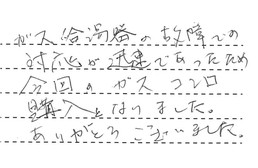 ガス給湯器の故障での
対応が迅速であったため
今回のガスコンロ
購入となりました。
ありがとうございました。